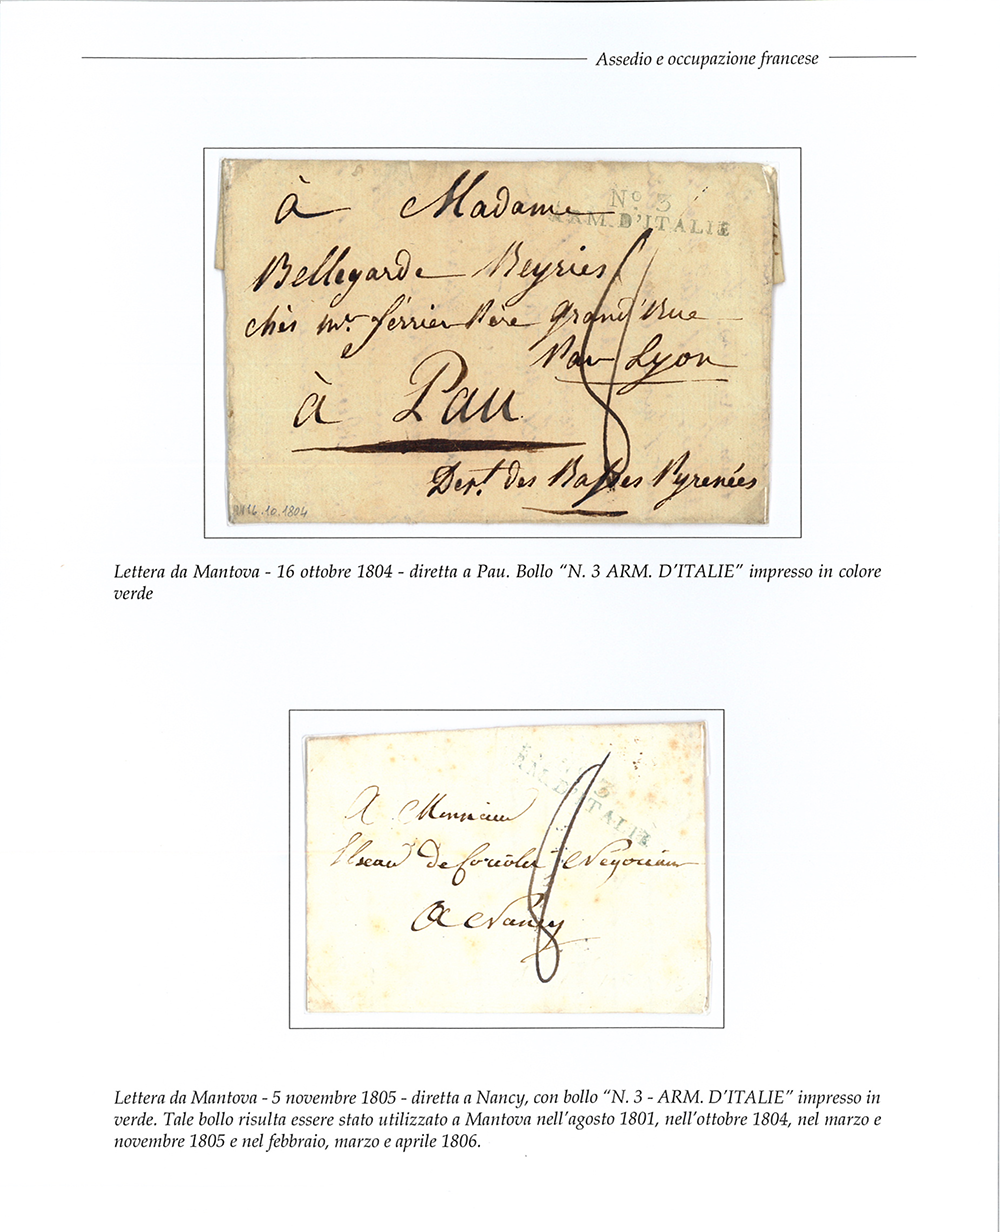 Assedio e occupazione francese
à Madame
No. 3
ARM. D'ITALIE
Bellegarde Beyries
chès mr. ferrier Père Grand'Rue
Par Lyon
8
à Pau
Dept. des Basses Pyrenées
16.10.1804
Lettera da Mantova - 16 ottobre 1804 - diretta a Pau. Bollo “N. 3 ARM. D’ITALIE” impresso in colore
verde
3
ARM. D'ITALIE
A Monsieur
de Negocient
8
A Nancy
Lettera da Mantova - 5 novembre 1805 - diretta a Nancy, con bollo “N. 3 - ARM. D’ITALIE” impresso in
verde. Tale bollo risulta essere stato utilizzato a Mantova nell’agosto 1801, nell’ottobre 1804, nel marzo e
novembre 1805 e nel febbraio, marzo e aprile 1806.